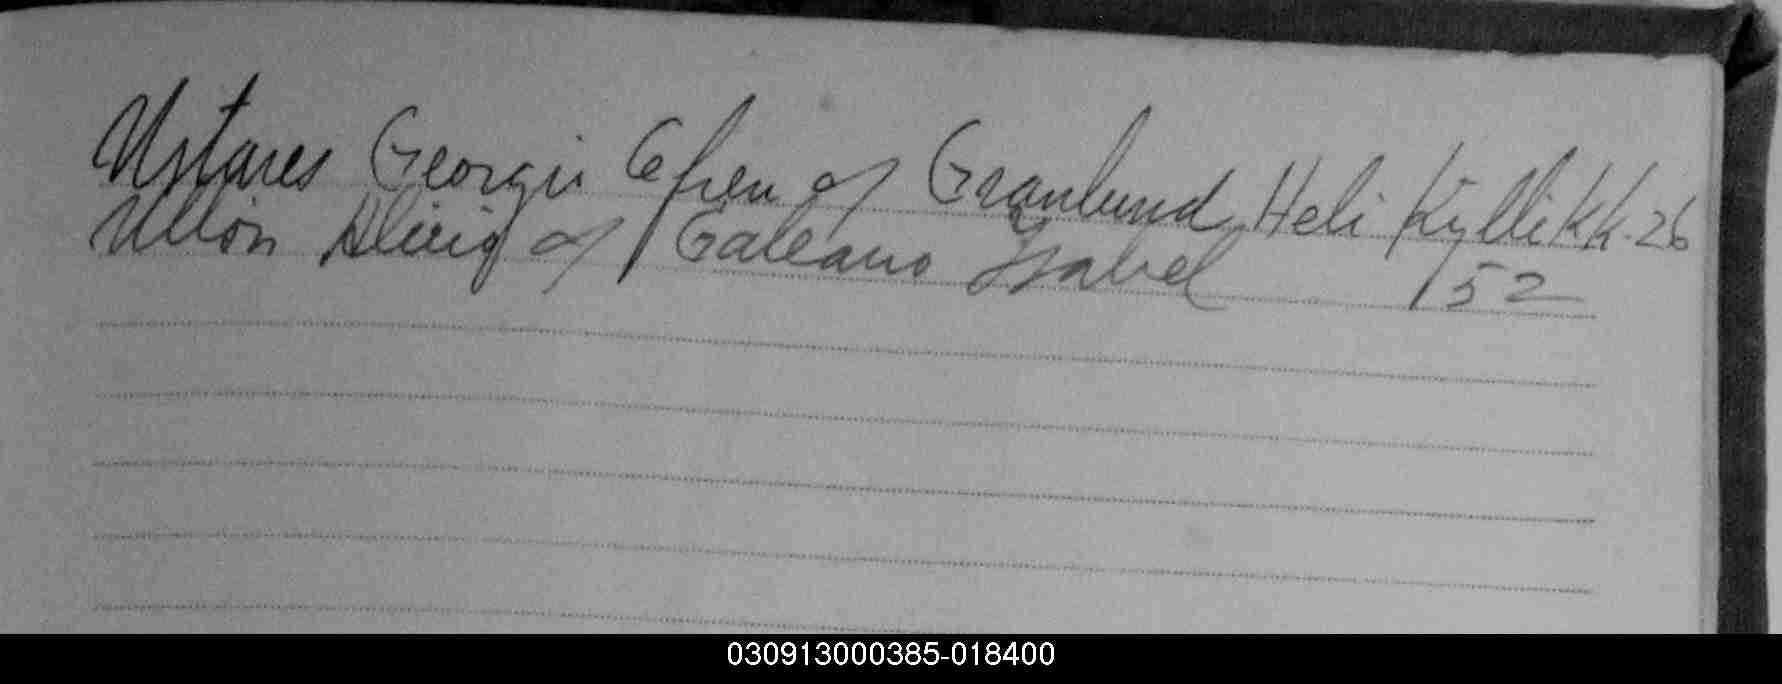 Ustares Georgii Efren c/ Granlund Heli Kyllikk-26
Ullón c/ Galeano Isabel 52
030913000385-018400